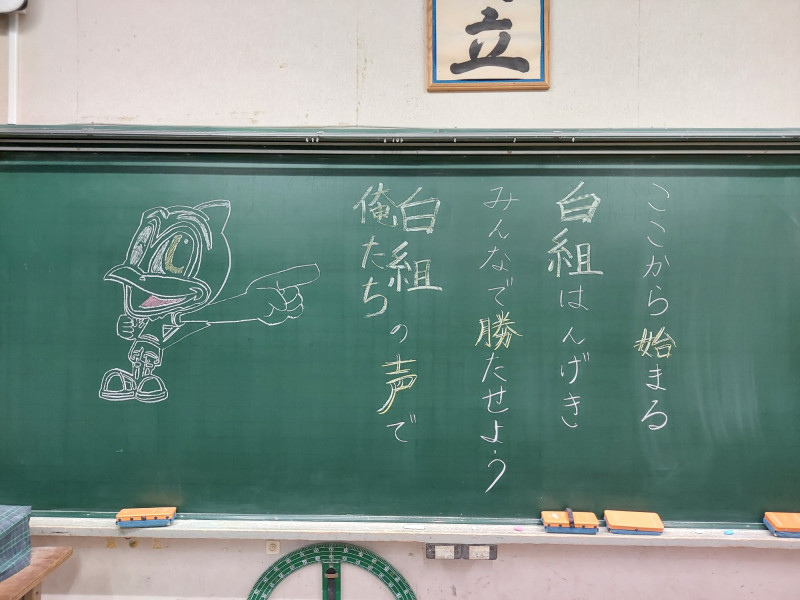 立
ここから始まる
白組はんげき
みんなで勝たせよう
白組
俺たちの声で